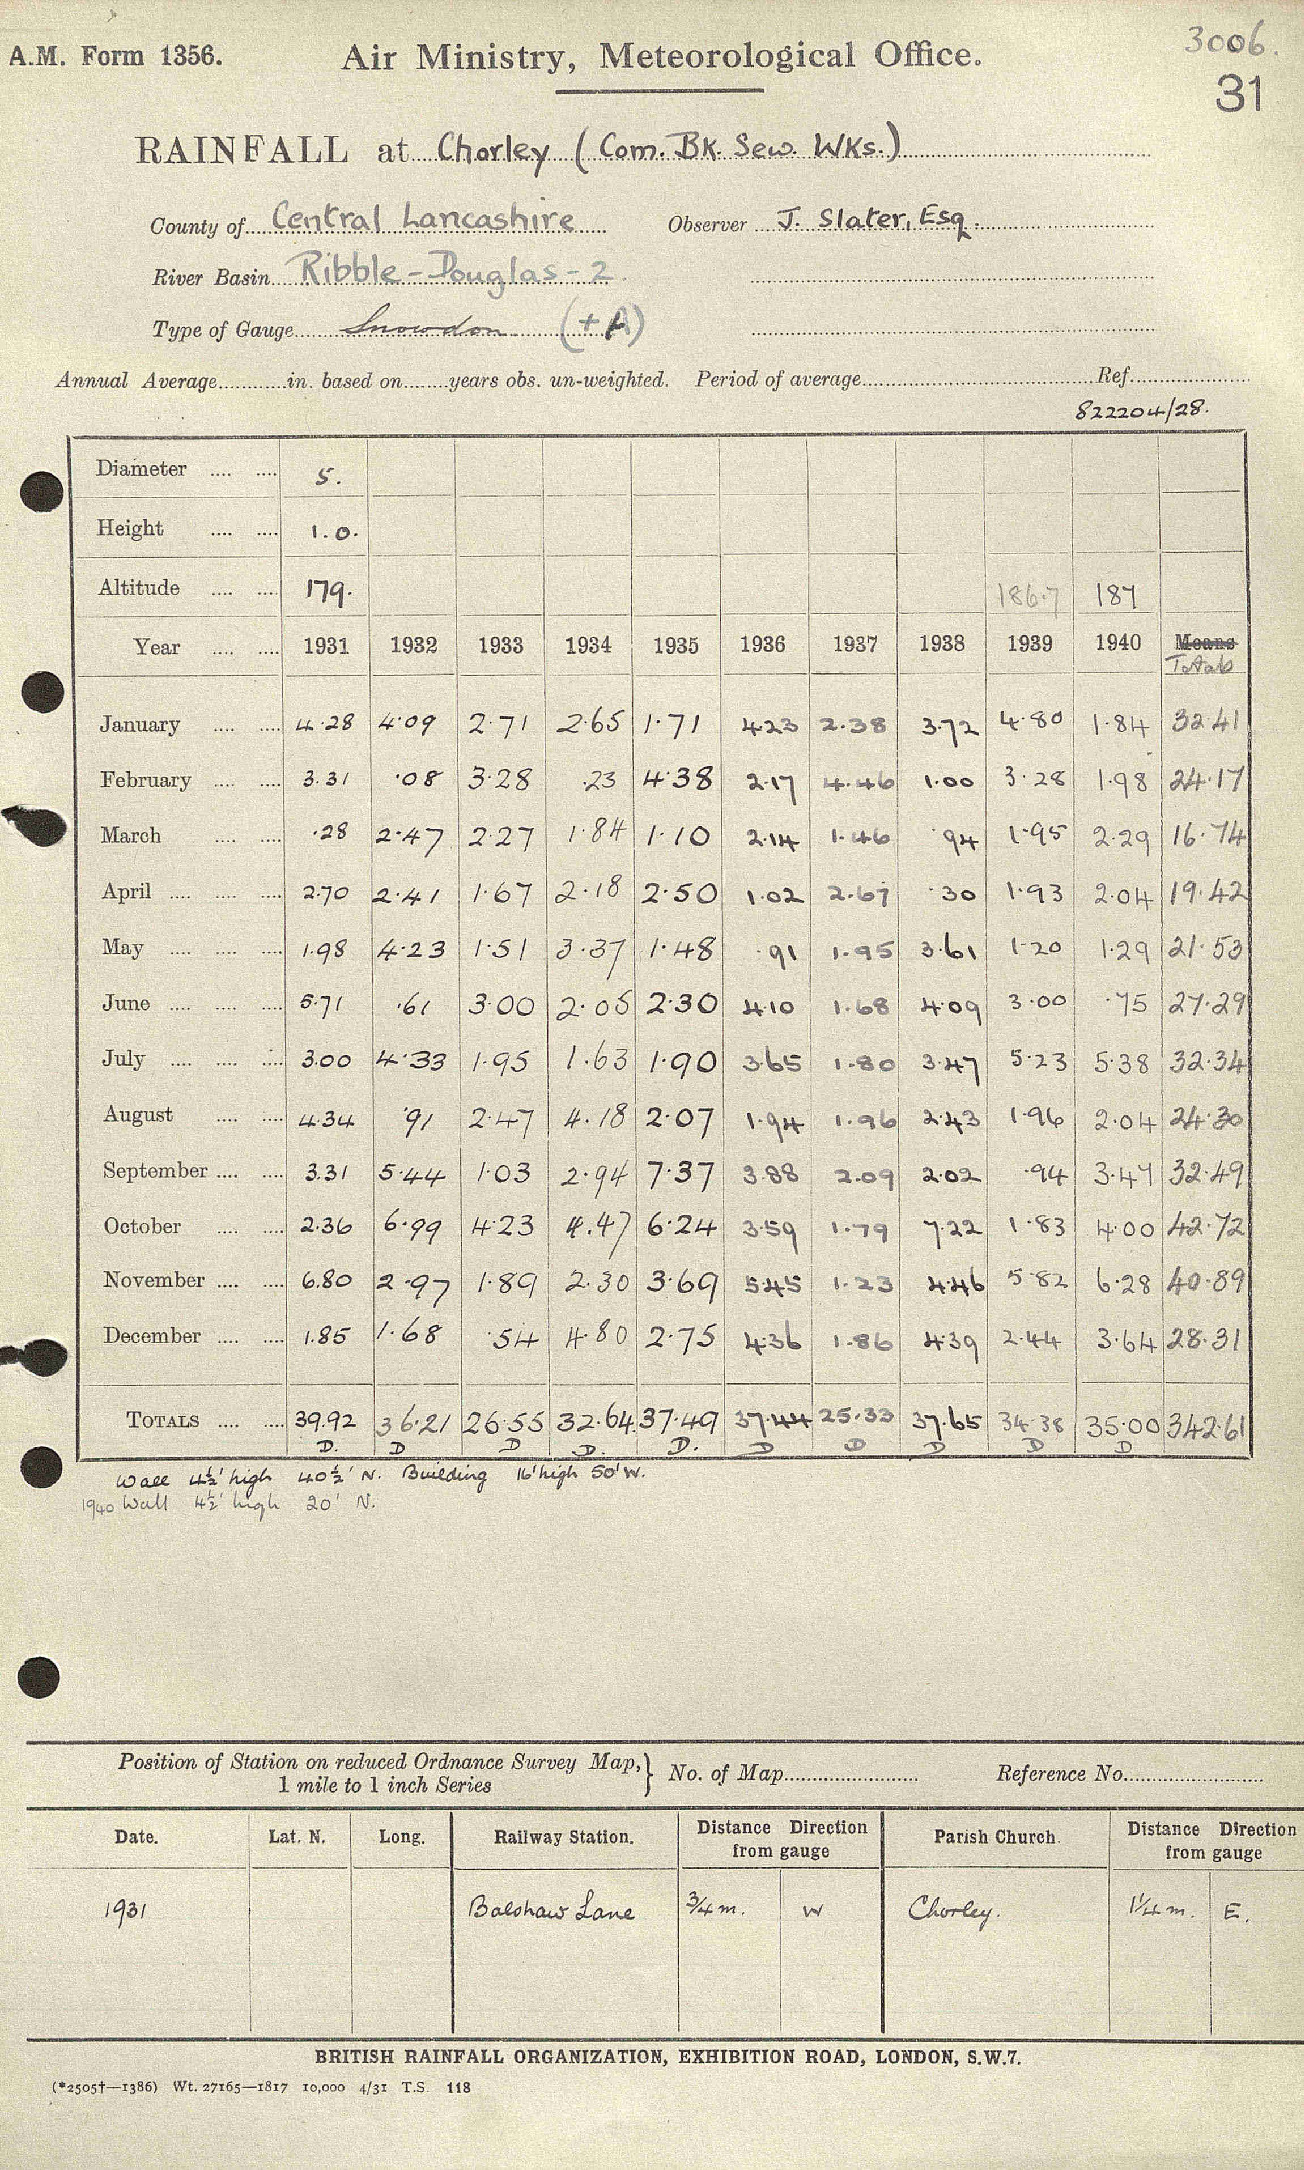 A.M. Form 1356.
Air Ministry, Meteorological Office.
3006.
31
RAINFALL at Chorley (Com. Bk. Sew. Wks.)
County of Central Lancashire Observer J. Slater, Esq.
River Basin Ribble-Douglas-2
Type of Gauge Snowdon (+A)
Annual Average in. based on years obs. un-weighted. Period of average Ref.
822204/28.
Diameter 5.
Height 1.0.
Altitude 179. 186.7 187
Year 1931 1932 1933 1934 1935 1936 1937 1938 1939 1940 Means
Totals
January 4.28 4.09 2.71 2.65 1.71 4.23 2.38 3.72 4.80 1.84 32.41
February 3.31 .08 3.28 .23 4.38 2.17 4.46 1.00 3.28 1.98 24.17
March .28 2.47 2.27 1.84 1.10 2.14 1.46 .94 1.95 2.29 16.74
April 2.70 2.41 1.67 2.18 2.50 1.02 2.67 .30 1.93 2.04 19.42
May 1.98 4.23 1.51 3.37 1.48 .91 1.95 3.61 1.20 1.29 21.53
June 5.71 .61 3.00 2.05 2.30 4.10 1.68 4.09 3.00 .75 27.29
July 3.00 4.33 1.95 1.63 1.90 3.65 1.80 3.47 5.23 5.38 32.34
August 4.34 .91 2.47 4.18 2.07 1.94 1.96 2.43 1.96 2.04 24.30
September 3.31 5.44 1.03 2.94 7.37 3.88 2.09 2.02 .94 3.47 32.49
October 2.36 6.99 4.23 4.47 6.24 3.59 1.79 7.22 1.83 4.00 42.72
November 6.80 2.97 1.89 2.30 3.69 5.45 1.23 4.46 5.82 6.28 40.89
December 1.85 1.68 .54 4.80 2.75 4.36 1.86 4.39 2.44 3.64 28.31
TOTALS 39.92 36.21 26.55 32.64 37.49 37.44 25.33 37.65 34.38 35.00 342.61
D. D D D. D. D D D D D
Wall 4½' high 40½' N. Building 16' high 50' W.
1940 Wall 4½' high 20' N.
Position of Station on reduced Ordnance Survey Map, } No. of Map Reference No.
1 mile to 1 inch Series
Date. Lat. N. Long. Railway Station. Distance Direction from gauge Parish Church. Distance Direction from gauge
1931 Balshaw Lane ¾ m. W Chorley. 1¼ m. E.
BRITISH RAINFALL ORGANIZATION, EXHIBITION ROAD, LONDON, S.W.7.
(*2505†—1386) Wt. 27165—1817 10,000 4/31 T.S. 118